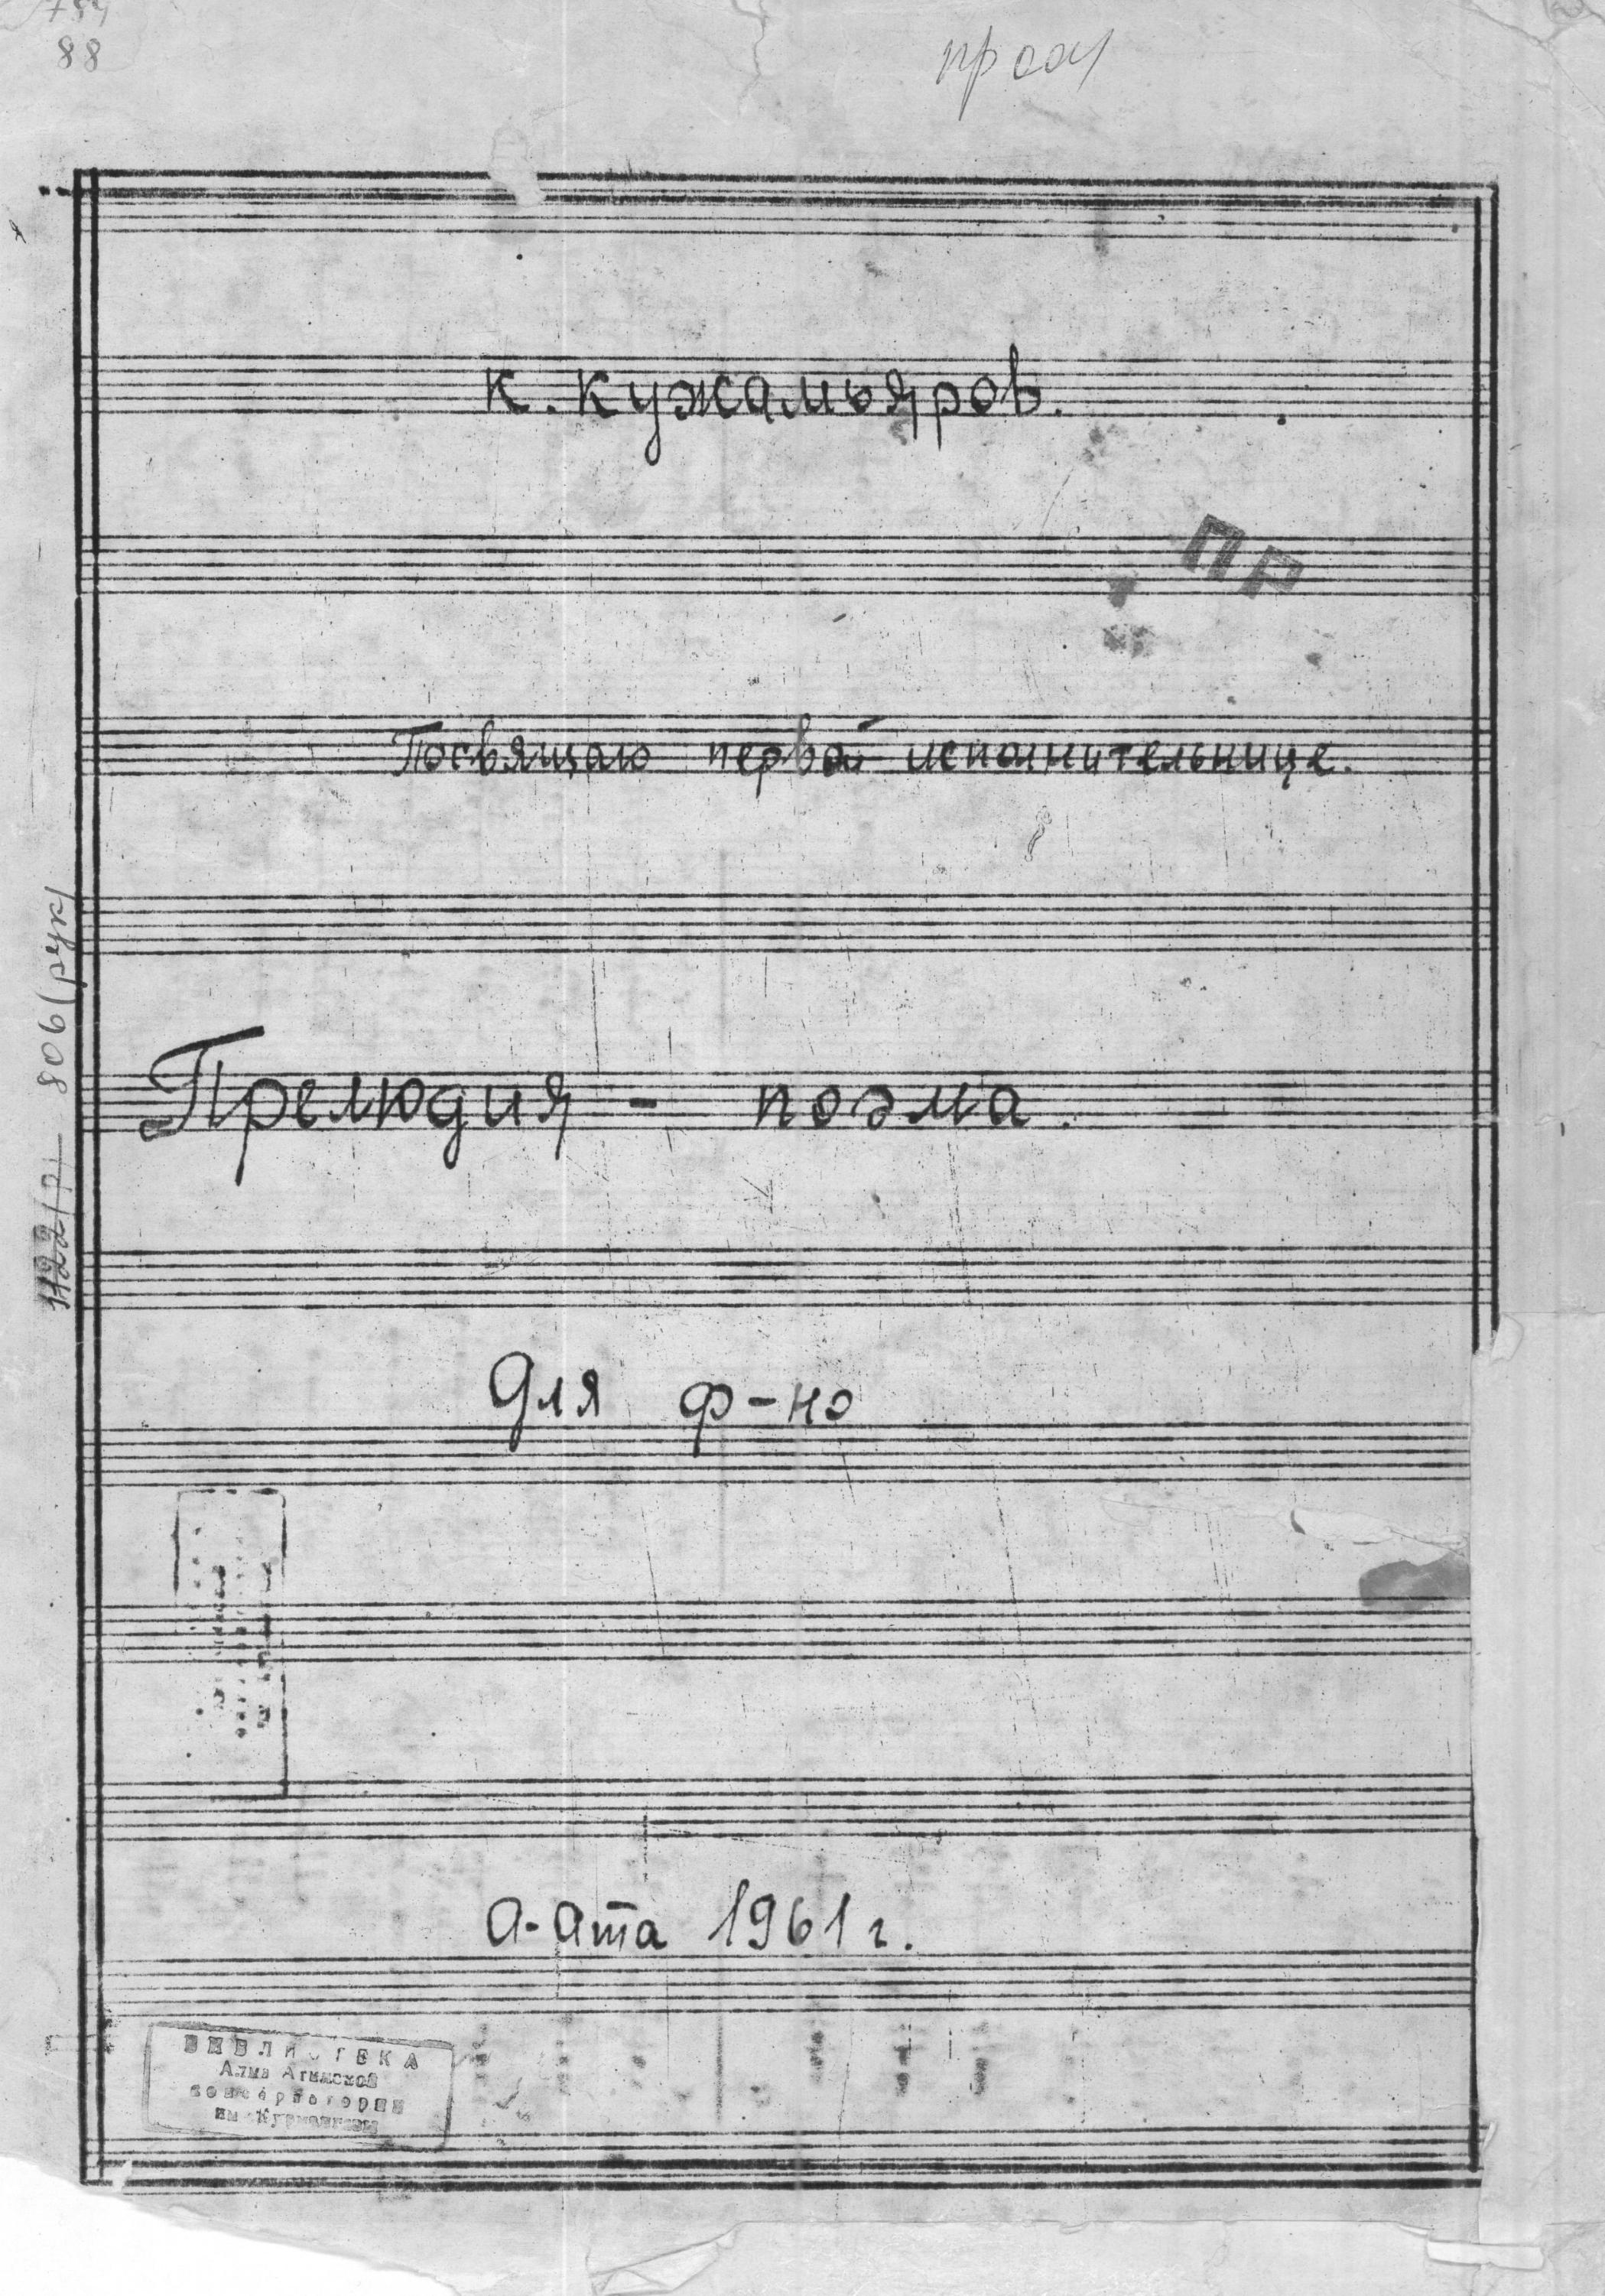 88
К. Кужамьяров.
ПР
Посвящаю первой исполнительнице.
806 (рук)
Прелюдия - поэма.
Для ф-но
А-Ата 1961 г.
БИБЛИОТЕКА
Алма Атинской
консерватории
им. Курмангазы